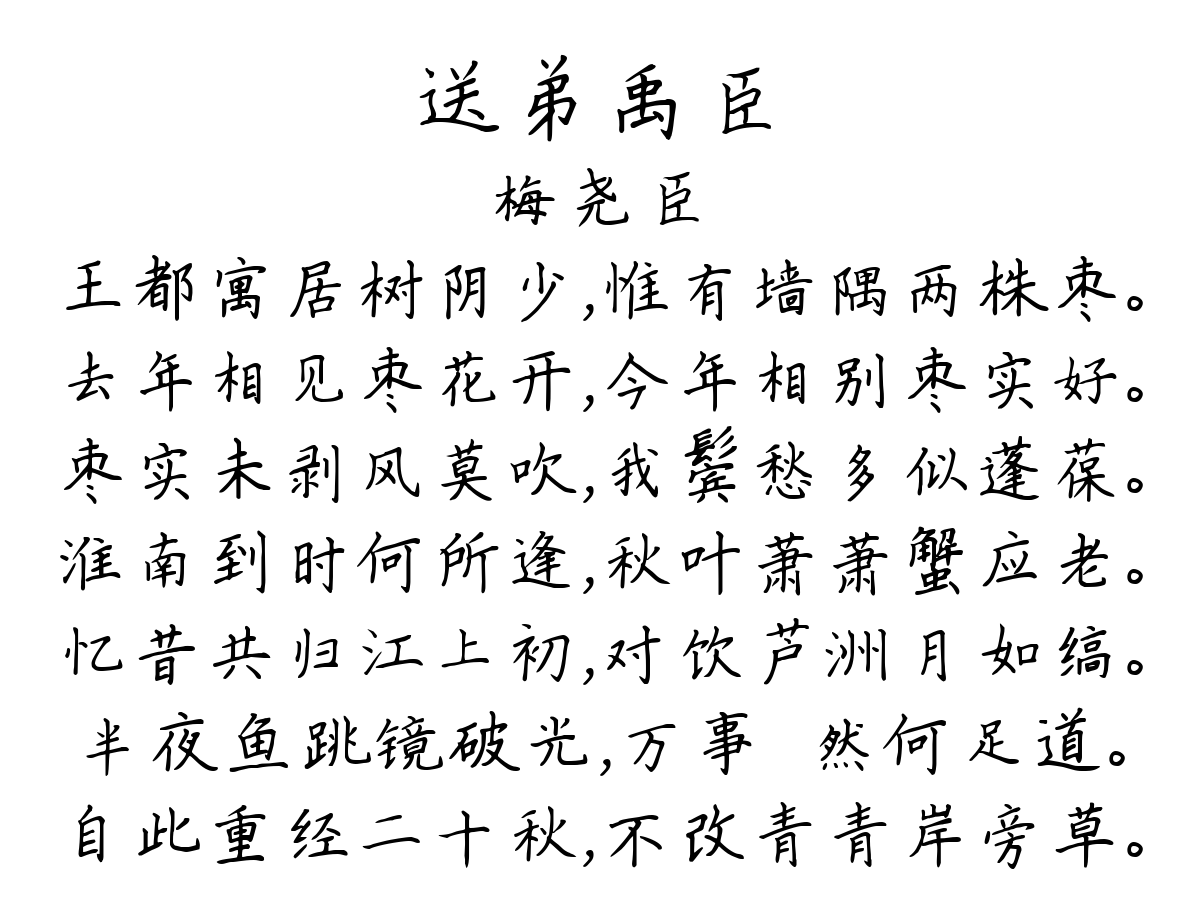 送弟禹臣
梅尧臣
王都寓居树阴少,惟有墙隅两株枣。
去年相见枣花开,今年相别枣实好。
枣实未剥风莫吹,我鬓愁多似蓬葆。
淮南到时何所逢,秋叶萧萧蟹应老。
忆昔共归江上初,对饮芦洲月如缟。
半夜鱼跳镜破光,万事 然何足道。
自此重经二十秋,不改青青岸旁草。